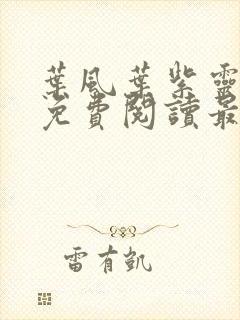 葉風葉紫靈
免費閱讀最
雷有凱